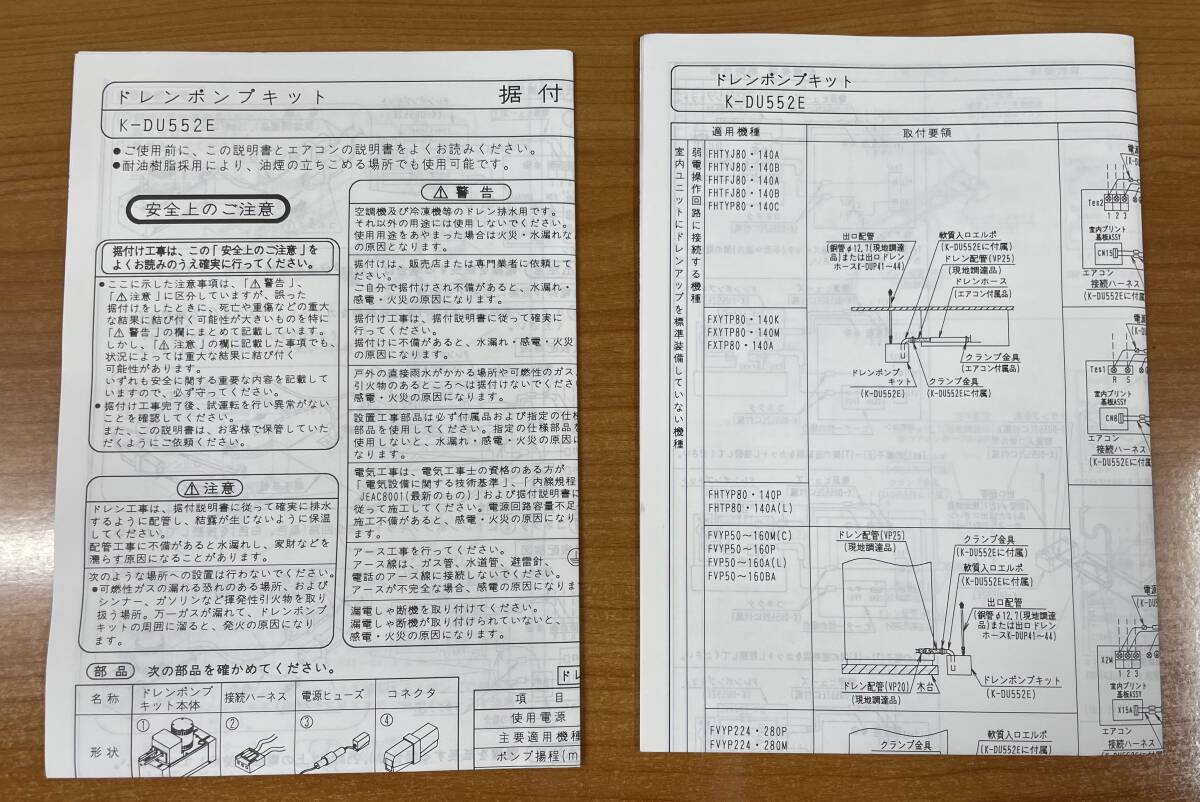 ドレンポンプキット 据付
K-DU552E
●ご使用前に、この説明書とエアコンの説明書をよくお読みください。
●耐油樹脂採用により、油煙の立ちこめる場所でも使用可能です。
安全上のご注意
据付け工事は、この「安全上のご注意」を
よくお読みのうえ確実に行ってください。
●ここに示した注意事項は、「⚠警告」、
「⚠注意」に区分していますが、誤った
据付けをしたときに、死亡や重傷などの重大
な結果に結び付く可能性が大きいものを特に
「⚠警告」の欄にまとめて記載しています。
しかし、「⚠注意」の欄に記載した事項でも、
状況によっては重大な結果に結び付く
可能性があります。
いずれも安全に関する重要な内容を記載して
いますので、必ず守ってください。
●据付け工事完了後、試運転を行い異常がない
ことを確認してください。
また、この説明書は、お客様で保管していた
だくようにご依頼ください。
⚠注意
ドレン工事は、据付説明書に従って確実に排水
するように配管し、結露が生じないように保温
してください。
配管工事に不備があると水漏れし、家財などを
濡らす原因になることがあります。
次のような場所への設置は行わないでください。
●可燃性ガスの漏れる恐れのある場所、および
シンナー、ガソリンなど揮発性引火物を取り
扱う場所。万一ガスが漏れて、ドレンポンプ
キットの周囲に溜ると、発火の原因になり
ます。
⚠警告
空調機及び冷凍機等のドレン排水用です。
それ以外の用途には使用しないでください。
使用用途をあやまった場合は火災・水漏れな
の原因となります。
据付けは、販売店または専門業者に依頼して
ださい。
ご自分で据付けされ不備があると、水漏れ・
感電・火災の原因になります。
据付け工事は、据付説明書に従って確実に
行ってください。
据付けに不備があると、水漏れ・感電・火災
の原因になります。
戸外の直接雨水がかかる場所や可燃性のガス
引火物のあるところへは据付けないでくださ
感電・火災の原因になります。
設置工事部品は必ず付属品および指定の仕様
部品を使用してください。指定の仕様部品を
使用しないと、水漏れ・感電・火災の原因に
なります。
電気工事は、電気工事士の資格のある方が
「電気設備に関する技術基準」、「内線規程
JEAC8001(最新のもの)」および据付説明書に
従って施工してください。電源回路容量不足
施工不備があると、感電・火災の原因になり
ます。
アース工事を行ってください。
アース線は、ガス管、水道管、避雷針、
電話のアース線に接続しないでください。
アースが不完全な場合、感電の原因になりま
漏電しゃ断機を取り付けてください。
漏電しゃ断機が取り付けられていないと、
感電・火災の原因になります。
部品 次の部品を確かめてください。
名称 ドレンポンプキット本体 接続ハーネス 電源ヒューズ コネクタ
形状 ① ② ③ ④
ドレ
項目
使用電源
主要適用機種
ポンプ揚程(m
ドレンポンプキット
K-DU552E
適用機種 取付要領
弱電操作回路に接続する機種
室内ユニットにドレンアップを標準装備していない機種
FHTYJ80・140A
FHTYJ80・140B
FHTFJ80・140A
FHTFJ80・140B
FHTYP80・140C
FXYTP80・140K
FXYTP80・140M
FXTP80・140A
出口配管
(銅管φ12.7(現地調達
品)または出口ドレン
ホースK-DUP41～44)
軟質入口エルボ
(K-DU552Eに付属)
ドレン配管(VP25)
(現地調達品)
ドレンホース
(エアコン付属品)
クランプ金具
(エアコン付属品)
ドレンポンプ
キット
(K-DU552E)
クランプ金具
(K-DU552Eに付属)
電源
(K-D
Tes2
1 2 3
室内プリント
基板ASSY
CN15
エアコン
接続ハーネス
(K-DU552Eに付
電
(K-D
Tes1
R S
室内プリント
基板ASSY
CN8
エアコン
接続ハーネス
(K-DU552Eに付属
FHTYP80・140P
FHTP80・140A(L)
FVYP50～160M(C)
FVYP50～160P
FVP50～160A(L)
FVP50～160BA
ドレン配管(VP25)
(現地調達品)
クランプ金具
(K-DU552Eに付属)
軟質入口エルボ
(K-DU552Eに付属)
出口配管
(銅管φ12.7(現地調達
品)または出口ドレン
ホースK-DUP41～44)
ドレン配管(VP20)
(現地調達品)
木台
ドレンポンプキット
(K-DU552E)
電源
(K-DU5
X2M
1 2 3
室内プリント
基板ASSY
X15A
エアコン
接続ハーネス
FVYP224・280P
FVYP224・280M
クランプ金具
軟質入口エルボ
(K-DU552Eに付属)